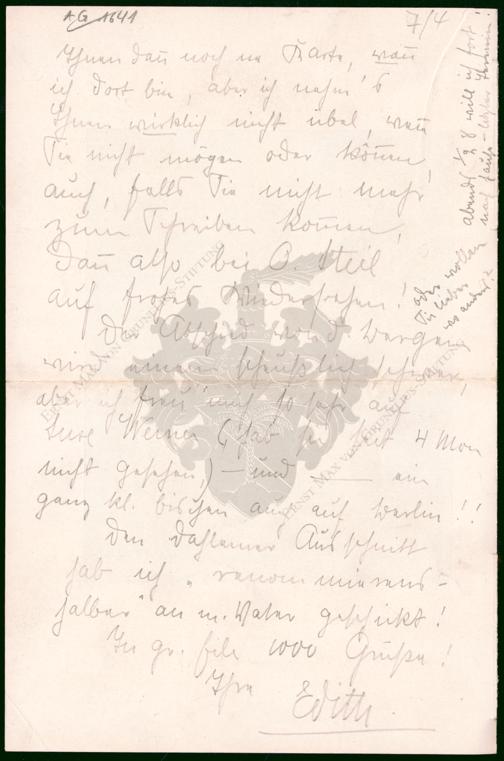 AG 1641
7/4
Ihnen dann noch ne Karte, wann
ich dort bin, aber ich nehm's
Ihnen wirklich nicht übel, wenn
Sie nicht mögen oder können
auch, falls Sie nicht mehr
zum Schreiben kommen,
Dann also bei O. Steil
auf frohes Wiedersehen!
Der Abschied von d Bergen
wird einem scheußlich schwer,
aber ich freu mich so sehr auf
Werner (hab ihn seit 4 Mon
nicht gesehen,) – und — ein
ganz kl. bischen auch auf Berlin!!
Den Dahlemer Ausschnitt
hab ich „renommierens-
halber" an m. Vater geschickt!
In gr. Eile 1000 Grüße!
Ihre Edith.
abends ½ 8 will ich fort
nach - letzter Termin!
oder wollen
Sie lieber
was anders?
ERNST MAX VON GRUNELIUS-STIFTUNG
ERNST MAX VON GRUNELIUS-STIFTUNG